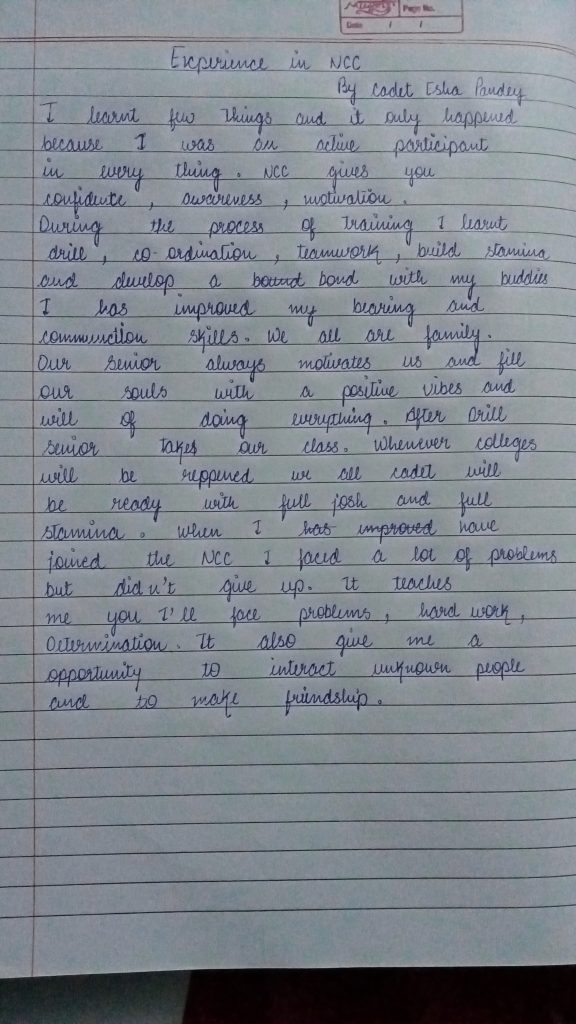 Page No.
Date / /
Experience in NCC
By Cadet Esha Pandey
I learnt few things and it only happened
because I was an active participant
in every thing. NCC gives you
confidente, awareness, motivation.
During the process of training I learnt
drill, co-ordination, teamwork, build stamina
and develop a bound bond with my buddies
I has improved my bearing and
communction skills. We all are family.
Our senior always motivates us and fill
our souls with a positive vibes and
will of doing everything. After Drill
senior takes our class. Whenever colleges
will be reppened we all cadet will
be ready with full josh and full
stamina. When I has improved have
joined the NCC I faced a lot of problems
but did n't give up. It teaches
me you I'll face problems, hard work,
Determination. It also give me a
opportunity to interact unknown people
and to make friendship.